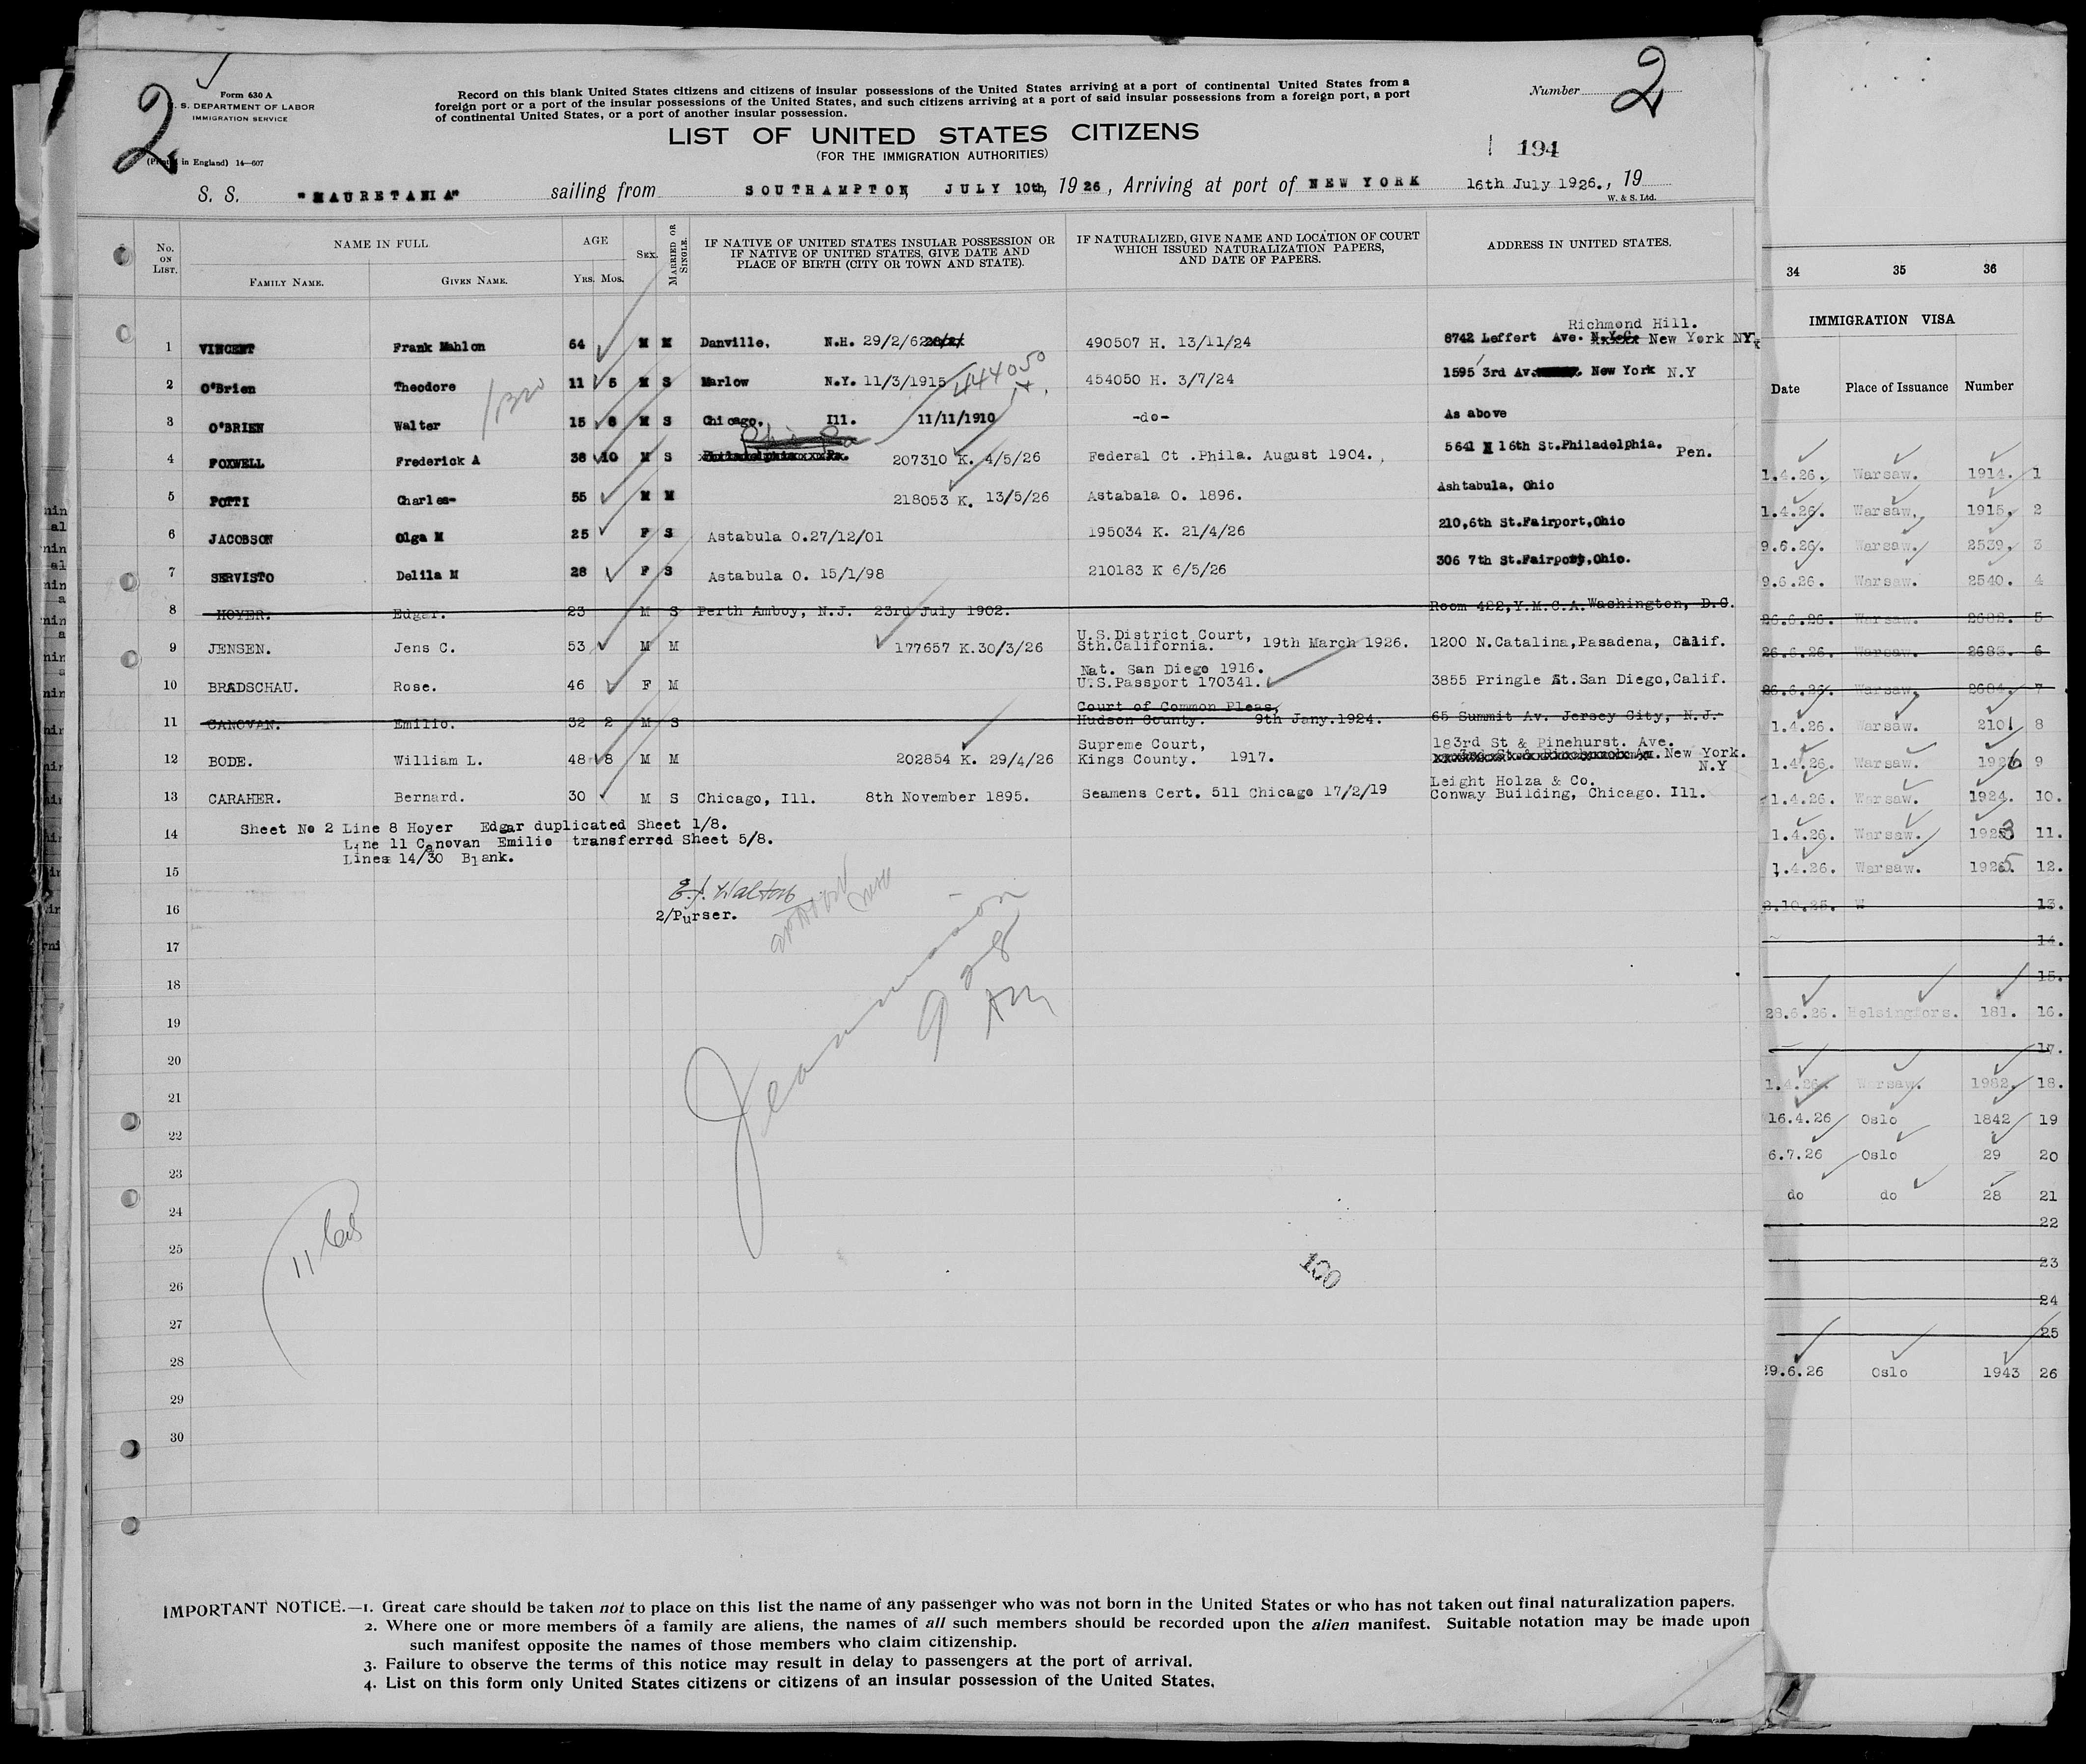 2
2
Form 630 A
U. S. DEPARTMENT OF LABOR
IMMIGRATION SERVICE
(Printed in England) 14—607
Record on this blank United States citizens and citizens of insular possessions of the United States arriving at a port of continental United States from a
foreign port or a port of the insular possessions of the United States, and such citizens arriving at a port of said insular possessions from a foreign port, a port
of continental United States, or a port of another insular possession.
Number
LIST OF UNITED STATES CITIZENS
(FOR THE IMMIGRATION AUTHORITIES)
194
S. S. "MAURETANIA" sailing from SOUTHAMPTON, JULY 10th, 1926, Arriving at port of NEW YORK 16th July 1926., 19
W. & S. Ltd.
No. ON LIST. NAME IN FULL AGE SEX. MARRIED OR SINGLE. IF NATIVE OF UNITED STATES INSULAR POSSESSION OR IF NATIVE OF UNITED STATES, GIVE DATE AND PLACE OF BIRTH (CITY OR TOWN AND STATE). IF NATURALIZED, GIVE NAME AND LOCATION OF COURT WHICH ISSUED NATURALIZATION PAPERS, AND DATE OF PAPERS. ADDRESS IN UNITED STATES.
FAMILY NAME. GIVEN NAME. YRS. MOS.
Richmond Hill.
1 VINCENT Frank Mahlon 64 M M Danville. N.H. 29/2/62 490507 H. 13/11/24 8742 Leffert Ave. New York NY
444050
2 O'Brien Theodore 11 5 M S Marlow N.Y. 11/3/1915 454050 H. 3/7/24 1595 3rd Av. New York N.Y
1320
3 O'BRIEN Walter 15 8 M S Chicago. Ill. 11/11/1910 -do- As above
4 FOXWELL Frederick A 38 10 M S Philadelphia Pa. 207310 K. 4/5/26 Federal Ct .Phila. August 1904. 5641 N 16th St.Philadelphia. Pen.
5 POTTI Charles- 55 M M 218053 K. 13/5/26 Astabala O. 1896. Ashtabula, Ohio
6 JACOBSON Olga M 25 F S Astabula O.27/12/01 195034 K. 21/4/26 210,6th St.Fairport,Ohio
7 SERVISTO Delila M 28 F S Astabula O. 15/1/98 210183 K 6/5/26 306 7th St.Fairport,Ohio.
8 HOYER. Edgar. 23 M S Perth Amboy, N.J. 23rd July 1902. Room 422,Y.M.C.A.Washington, D.C.
9 JENSEN. Jens C. 53 M M 177657 K.30/3/26 U.S.District Court, Sth.California. 19th March 1926. 1200 N.Catalina,Pasadena, Calif.
10 BRADSCHAU. Rose. 46 F M Nat. San Diego 1916. U.S.Passport 170341. 3855 Pringle St.San Diego,Calif.
11 CANOVAN. Emilio. 32 2 M S Court of Common Pleas, Hudson County. 9th Jany.1924. 65 Summit Av. Jersey City, N.J.
12 BODE. William L. 48 8 M M 202854 K. 29/4/26 Supreme Court, Kings County. 1917. 183rd St & Pinehurst. Ave. New York. N.Y
13 CARAHER. Bernard. 30 M S Chicago, Ill. 8th November 1895. Seamens Cert. 511 Chicago 17/2/19 Leight Holza & Co. Conway Building, Chicago. Ill.
14 Sheet No 2 Line 8 Hoyer Edgar duplicated Sheet 1/8.
Line 11 Canovan Emilio transferred Sheet 5/8.
Lines 14/30 Blank.
15
16 E.J. Walton
2/Purser.
17
18
19
20
21
22
23
24
25
26
27
28
29
30
100
IMPORTANT NOTICE.—1. Great care should be taken not to place on this list the name of any passenger who was not born in the United States or who has not taken out final naturalization papers.
2. Where one or more members of a family are aliens, the names of all such members should be recorded upon the alien manifest. Suitable notation may be made upon
such manifest opposite the names of those members who claim citizenship.
3. Failure to observe the terms of this notice may result in delay to passengers at the port of arrival.
4. List on this form only United States citizens or citizens of an insular possession of the United States.
34 35 36
IMMIGRATION VISA
Date Place of Issuance Number
1.4.26. Warsaw. 1914. 1
1.4.26. Warsaw. 1915. 2
9.6.26. Warsaw. 2539. 3
9.6.26. Warsaw. 2540. 4
26.6.26. Warsaw. 2682. 5
26.6.26. Warsaw. 2683. 6
26.6.26. Warsaw. 2684. 7
1.4.26. Warsaw. 2101 8
1.4.26. Warsaw. 1926 9
1.4.26. Warsaw. 1924. 10.
1.4.26. Warsaw. 1923 11.
1.4.26. Warsaw. 1925 12.
2.10.25. W 13.
14.
15.
28.6.26. Helsingfors. 181. 16.
17.
1.4.26. Warsaw. 1982. 18.
16.4.26 Oslo 1842 19
6.7.26 Oslo 29 20
do do 28 21
22
23
24
25
29.6.26 Oslo 1943 26